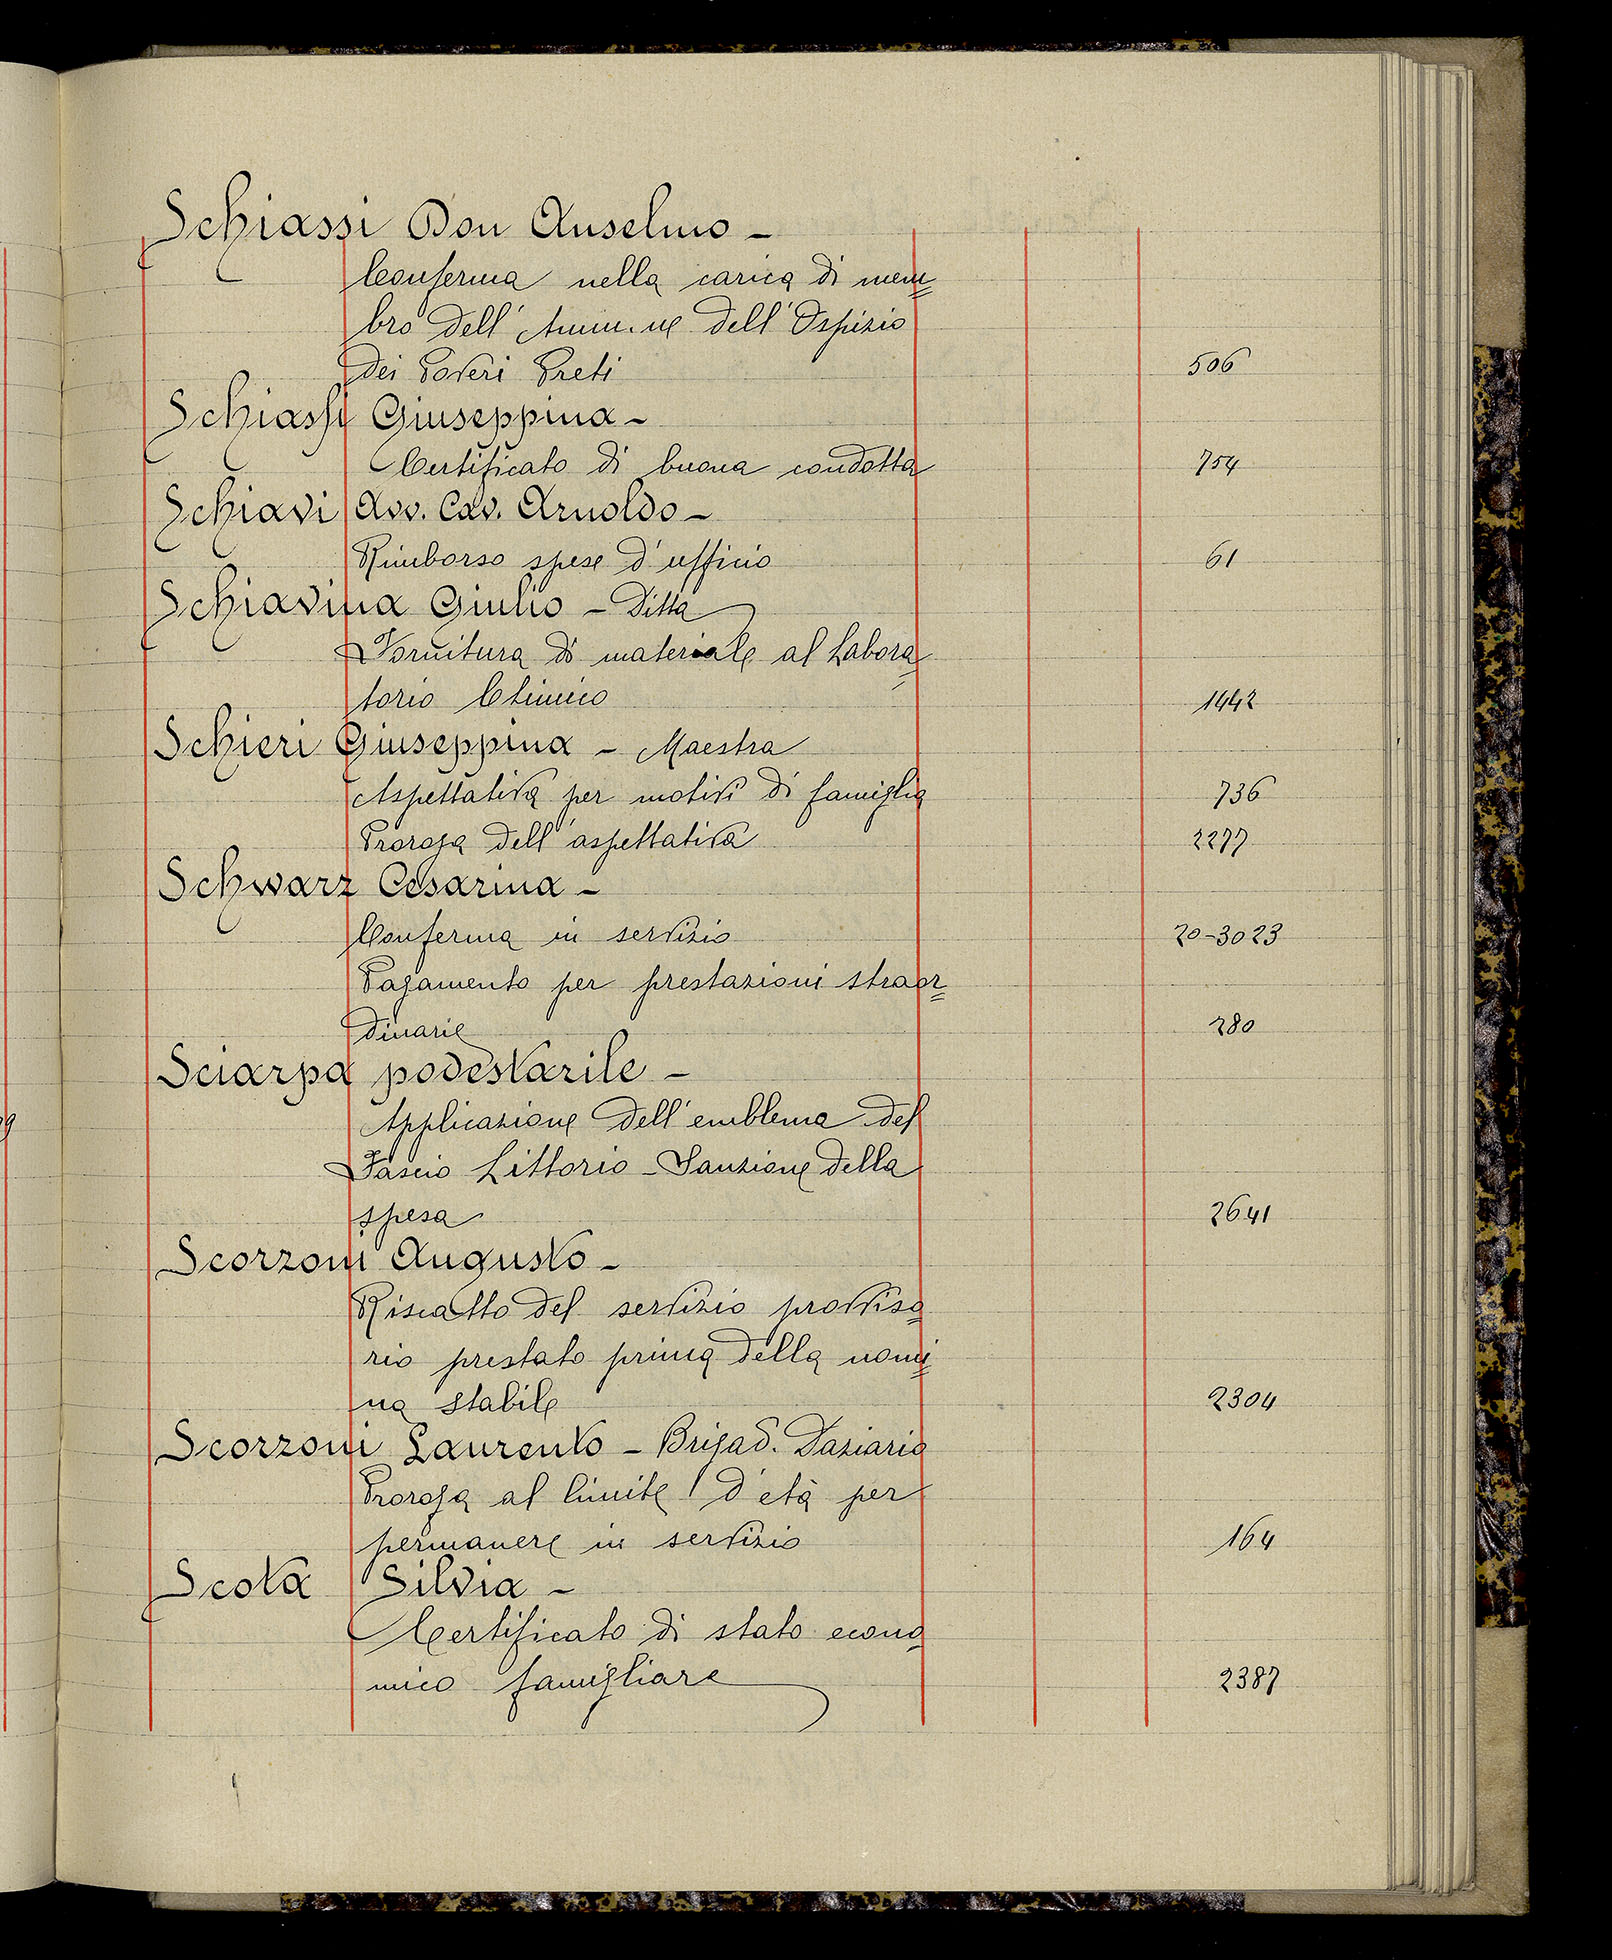 Schiassi Don Anselmo -
Conferma nella carica di mem=
bro dell'Amm.ne dell'Ospizio
dei Poveri Preti 506
Schiassi Giuseppina -
Certificato di buona condotta 754
Schiavi Avv. Cav. Arnoldo -
Rimborso spese d'ufficio 61
Schiavina Giulio - Ditta
Fornitura di materiale al Labora=
torio Chimico 1442
Schieri Giuseppina - Maestra
Aspettativa per motivi di famiglia 736
Proroga dell'aspettativa 2277
Schwarz Cesarina -
Conferma in servizio 20-3023
Pagamento per prestazioni straor=
dinarie 280
Sciarpa podestarile -
Applicazione dell'emblema del
Fascio Littorio - Sanzione della
spesa 2641
Scorzoni Augusto -
Riscatto del servizio provviso=
rio prestato prima della nomi=
na stabile 2304
Scorzoni Laurento - Brigad. Daziario
Proroga al limite d'età per
permanere in servizio 164
Scota Silvia -
Certificato di stato econo=
mico famigliare 2387